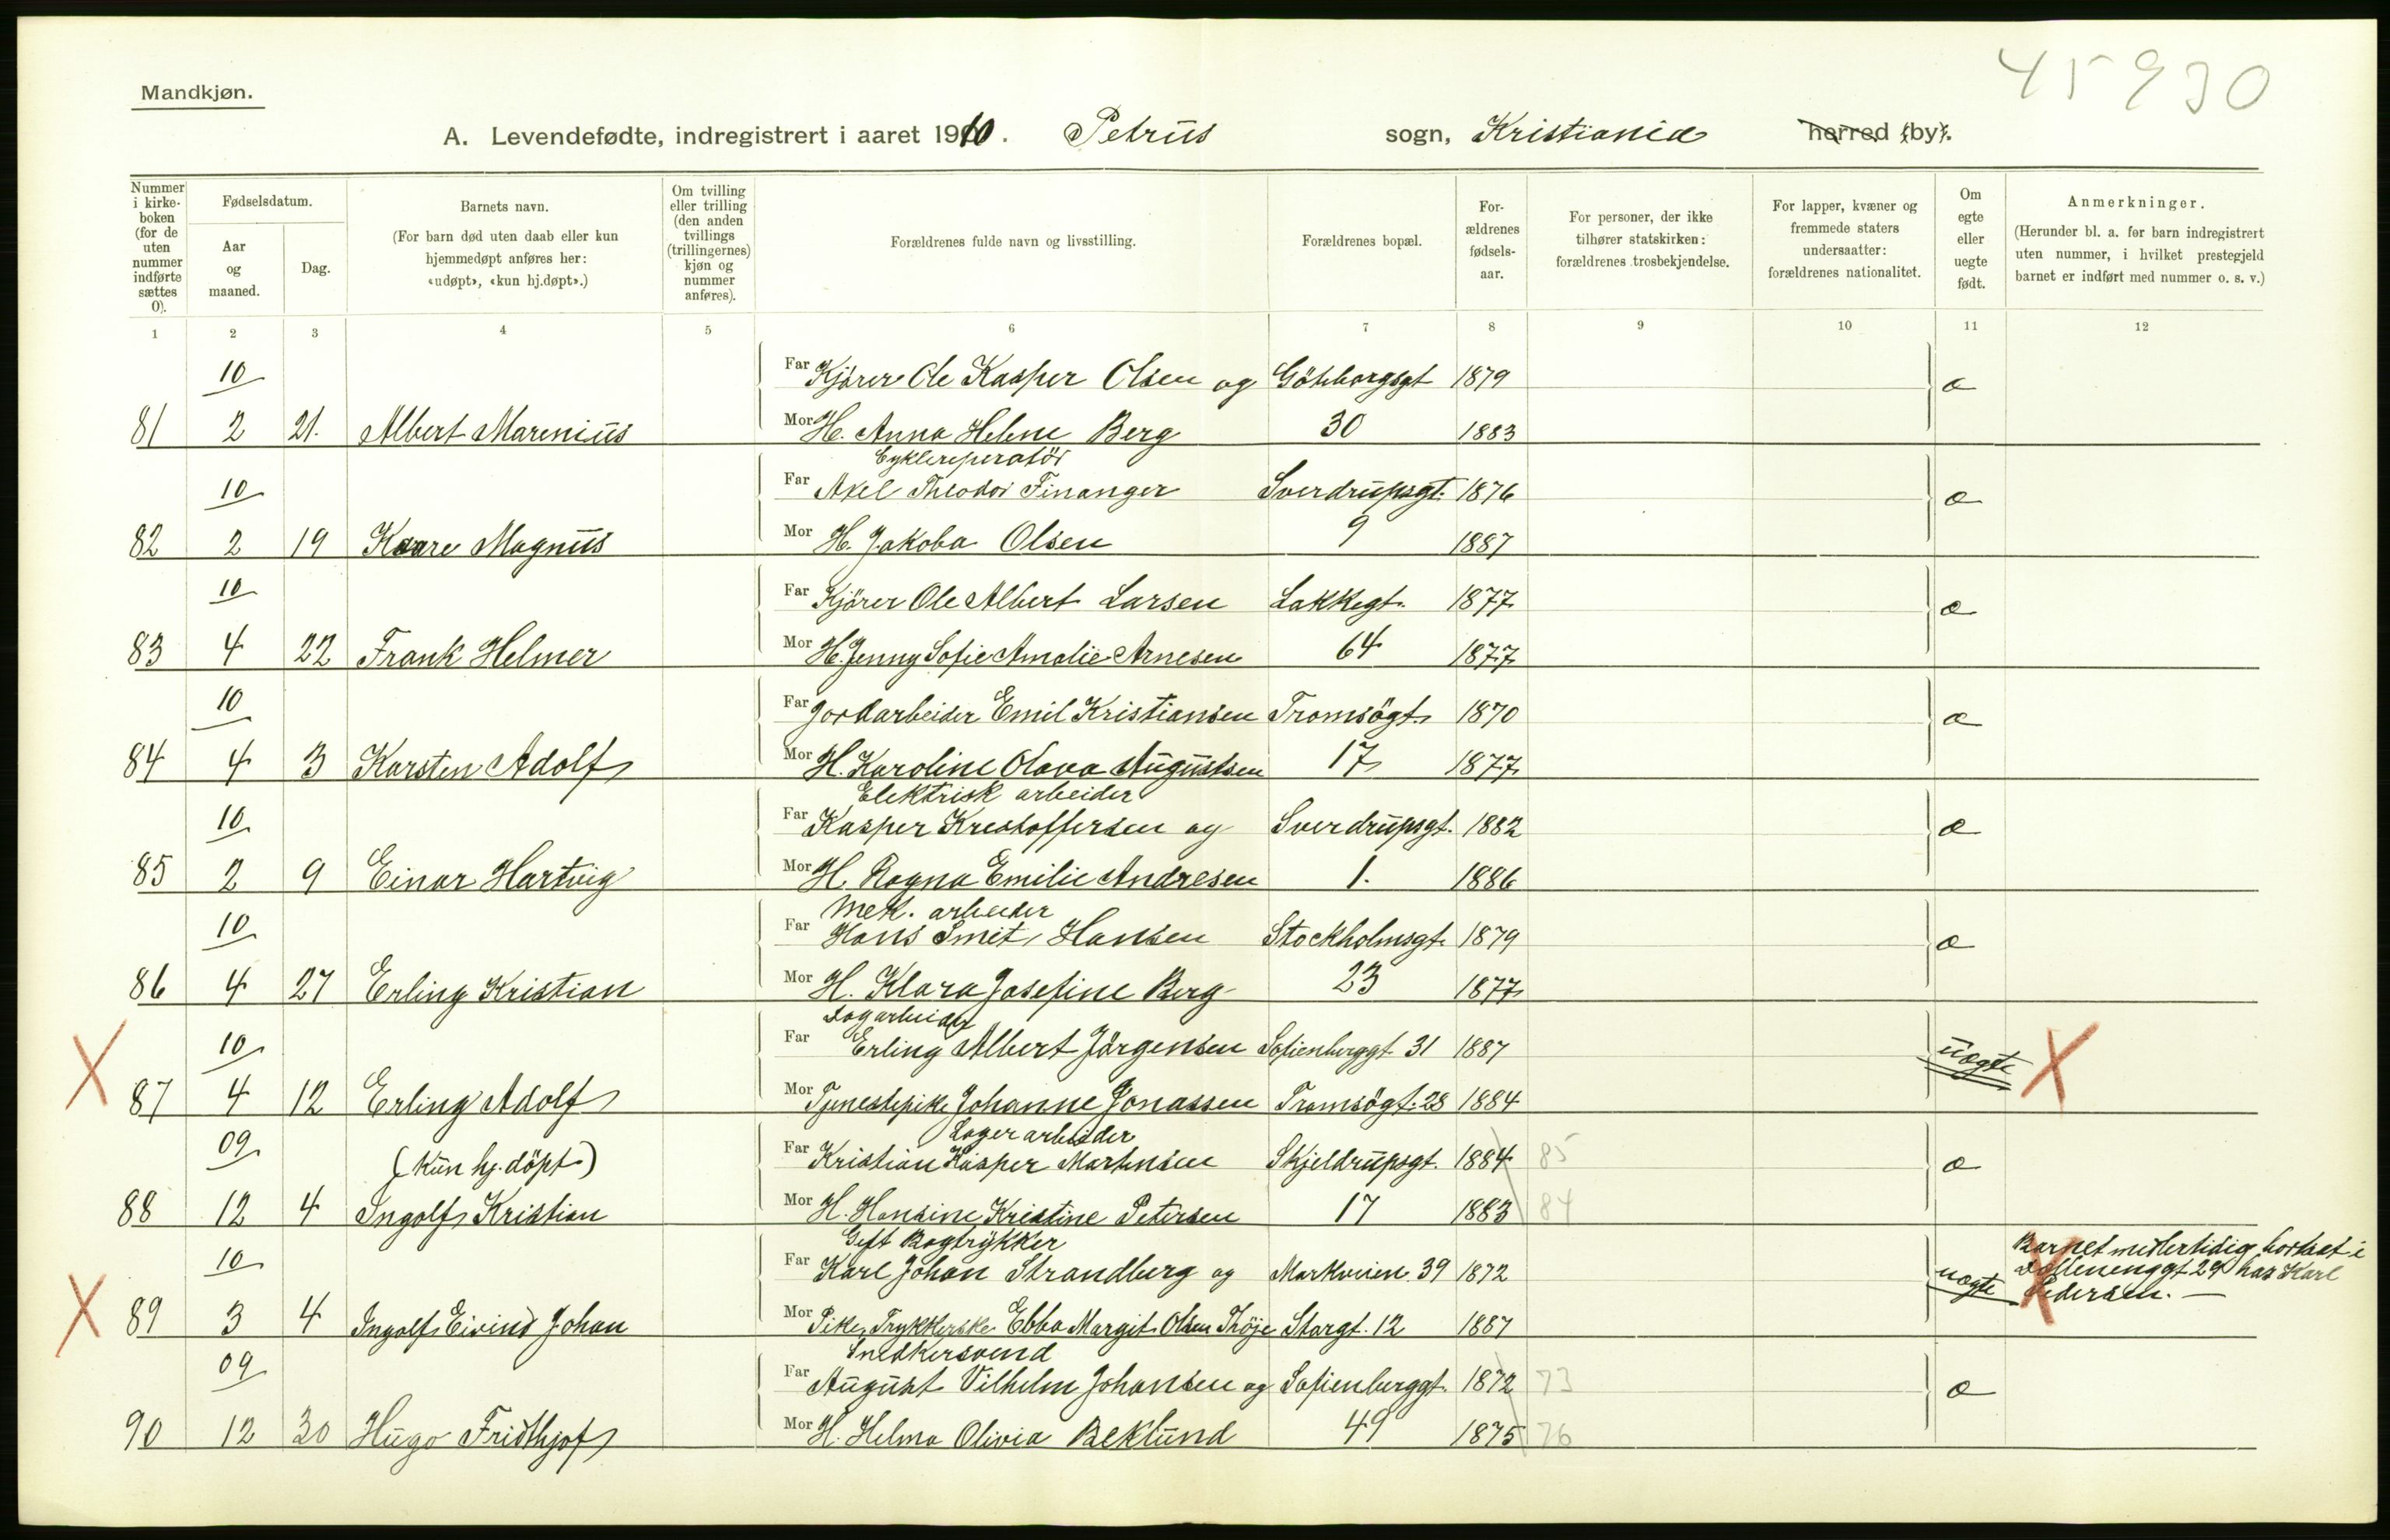 45930
Mandkjøn.
A. Levendefødte, indregistrert i aaret 1910. Petrus sogn, Kristiania herred (by).
Nummer i kirke-boken (for de uten nummer indførte sættes 0).
Fødselsdatum.
Aar og maaned.
Dag.
Barnets navn.
(For barn død uten daab eller kun hjemmedøpt anføres her: «udøpt», «kun hj.døpt».)
Om tvilling eller trilling (den anden tvillings (trillingernes) kjøn og nummer anføres).
Forældrenes fulde navn og livsstilling.
Forældrenes bopæl.
For-ældrenes fødsels-aar.
For personer, der ikke tilhører statskirken: forældrenes trosbekjendelse.
For lapper, kvæner og fremmede staters undersaatter: forældrenes nationalitet.
Om egte eller uegte født.
Anmerkninger.
(Herunder bl. a. for barn indregistrert uten nummer, i hvilket prestegjeld barnet er indført med nummer o. s. v.)
1 2 3 4 5 6 7 8 9 10 11 12
10 Far Kjörer Ole Kasper Olsen og Göteborgsgt 1879 æ
81 2 21. Albert Marenius Mor H. Anna Helene Berg 30 1883
Cyklereperatör
10 Far Axel Theodor Finanger Sverdrupsgt. 1876 æ
82 2 19 Kaare Magnus Mor H. Jakoba Olsen 9 1887
10 Far Kjörer Ole Albert Larsen Lakkegt. 1877 æ
83 4 22 Frank Helmer Mor H. Jenny Sofie Amalie Arnesen 64 1877
10 Far Jordarbeider Emil Kristiansen Tromsögt. 1870 æ
84 4 3 Karsten Adolf Mor H. Karoline Olava Augustsen 17 1877
Elektrisk arbeider
10 Far Kasper Krestoffersen og Sverdrupsgt. 1882 æ
85 2 9 Einar Hartvig Mor H. Ragna Emilie Andresen 1. 1886
Mek. arbeider
10 Far Hans Smit Hansen Stockholmsgt. 1879 æ
86 4 27 Erling Kristian Mor H. Klara Josefine Berg 23 1877
Lagarbeider
10 Far Erling Albert Jörgensen Sofienberggt 31 1887 uægte
87 4 12 Erling Adolf Mor Tjenestepike Johanne Jonassen Tromsögt. 28 1884
Lagerarbeider
09 (Kun hj. döpt) Far Kristian Kasper Martinsen Skjeldrupsgt. 1884 85 æ
88 12 4 Ingolf Kristian Mor H. Hansine Kristine Petersen 17 1883 84
Gift Bogtrykker
10 Far Karl Johan Strandberg og Markveien 39 1872 uægte Barnet midlertidig bortsat i
Dælenenggt 29 hos Karl
Pedersen.
89 3 4 Ingolf Eivind Johan Mor Pike, Trykkerske Ebba Margit Olsen Thöje Storgt. 12 1887
Snedkersvend
09 Far August Vilhelm Johansen og Sofienberggt. 1872 73 æ
90 12 30 Hugo Fridthjof Mor H. Helma Olivia Beklund 49 1875 76